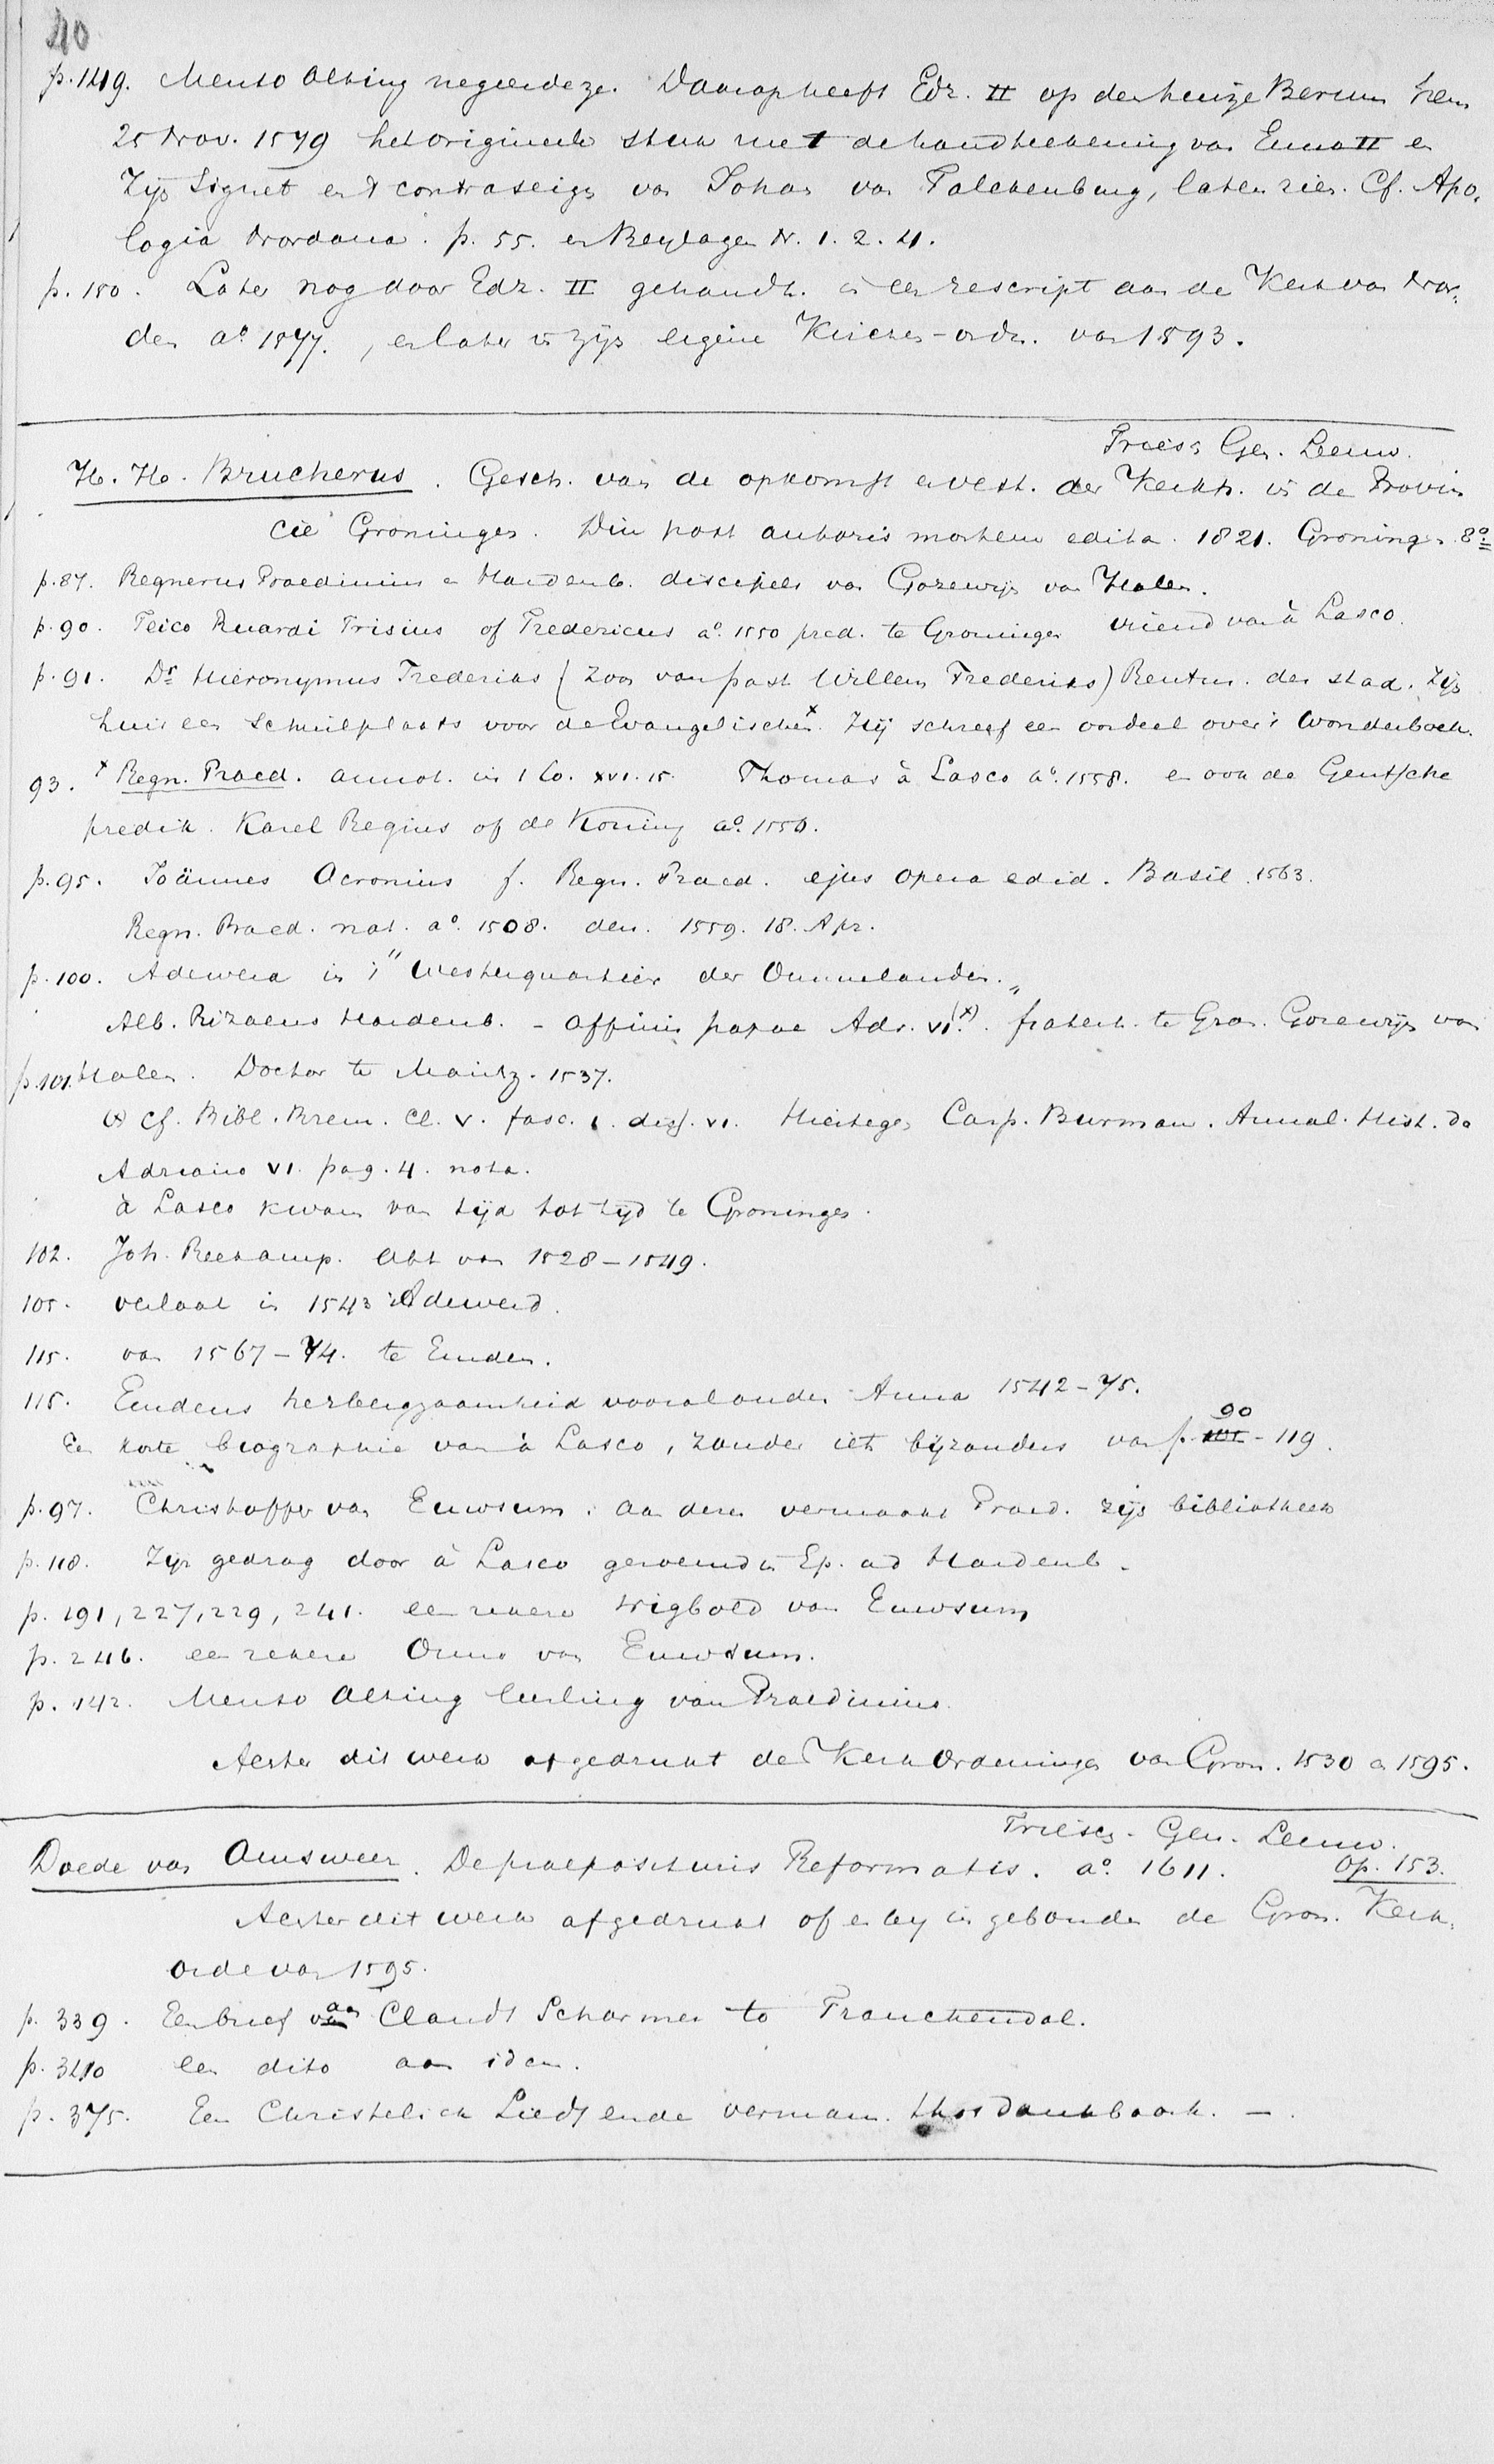 40
p. 149. Menso Alting negeerde ze. Daarop heeft Edz. II op den huize Berum hem
25 Nov. 1579 het origineele stuk met de handteekening van Enno II en
zijn Signet en 't contraseign van Johan van Falckenburg, laten zien. Cf. Apo-
logia Nordana. p. 55. en Beylagen N. 1. 2. 4.
p. 150. Later nog door Edz. II gehandh. in een rescript aan de Kerk van Nor-
den ao 1577., en later in zijn eigene Kirchen-ordn. van 1593.
Friesch Gen. Leeuw.
H. H. Brucherus. Gesch. van de opkomst en vest. der Kerkh. in de Provin
cie Groningen. Diu post autoris mortem edita. 1821. Groningen. 8o
p. 87. Regnerus Praedinius en Hardenb. discipels van Gozewijn van Halen.
p. 90. Feico Ruardi Frisius of Fredericus ao. 1550 pred. te Groningen vriend van à Lasco.
p. 91. Dr Hieronymus Frederiks (zoon van past Willem Frederiks) Rentm. der stad. Zijn
huis een schuilplaats voor de Evangelischen x Hij schreef een oordeel over 't Wonderboek.
93. x Regn. Praed. annot. in 1 Co. XVI. 15. Thomas à Lasco ao. 1558. en ook de Gentsche
predik. Karel Regius of de Koning ao. 1550.
p. 95. Joännes Acronius f. Regn. Praed. ejus opera edid. Basil. 1563.
Regn. Praed. nat. ao. 1508. den. 1559. 18. Apr.
p. 100. Adewera in 't "Westerquartier der Ommelanden."
Alb. Rizaeus Hardenb. - affinis papae Adr. VI.(x) fraterh. te Gron. Gozewijn van
p. 101. Halen. Doctor te Maintz. 1537.
(x) Cf. Bibl. Brem. Cl. V. fasc. 1. diss. VI. Hiertegen Casp. Burman. Annal. Hist. de
Adriano VI. pag. 4. nota.
à Lasco kwam van tijd tot tijd te Groningen.
102. Joh. Reekamp. Abt van 1528-1549.
105. verlaat in 1543 Adewerd.
115. van 1567-74. te Emden.
115. Emdens herbergzaamheid vooral onder Anna 1542-75.
Een korte biographie van à Lasco, zonder iets bijzonders van p. 90 - 119.
p. 97. Christoffer van Euwsum: aan deze vermaakt Praed. zijn bibliotheek
p. 118. Zijn gedrag door à Lasco geroemd in Ep. ad Hardenb.
p. 191, 227, 229, 241. een zekere Wigbold van Euwsum
p. 246. een zekere Onno van Euwsum.
p. 142. Menso Alting leerling van Praedinius
Achter dit werk afgedrukt de Kerk Ordeningen van Gron. 1530 en 1595.
Friesch. Gen. Leeuw.
Doede van Amsweer. De praeposturis Reformatis. ao. 1611. Op. 153.
Achter dit werk afgedrukt of er bij in gebonden de Gron. Kerk-
orde van 1595.
p. 339. Een brief aan Claudt Scharmer to Franckendal.
p. 340 een dito aan idem.
p. 375. Een Christelick Liedt ende verman. thor danckbaark. -.